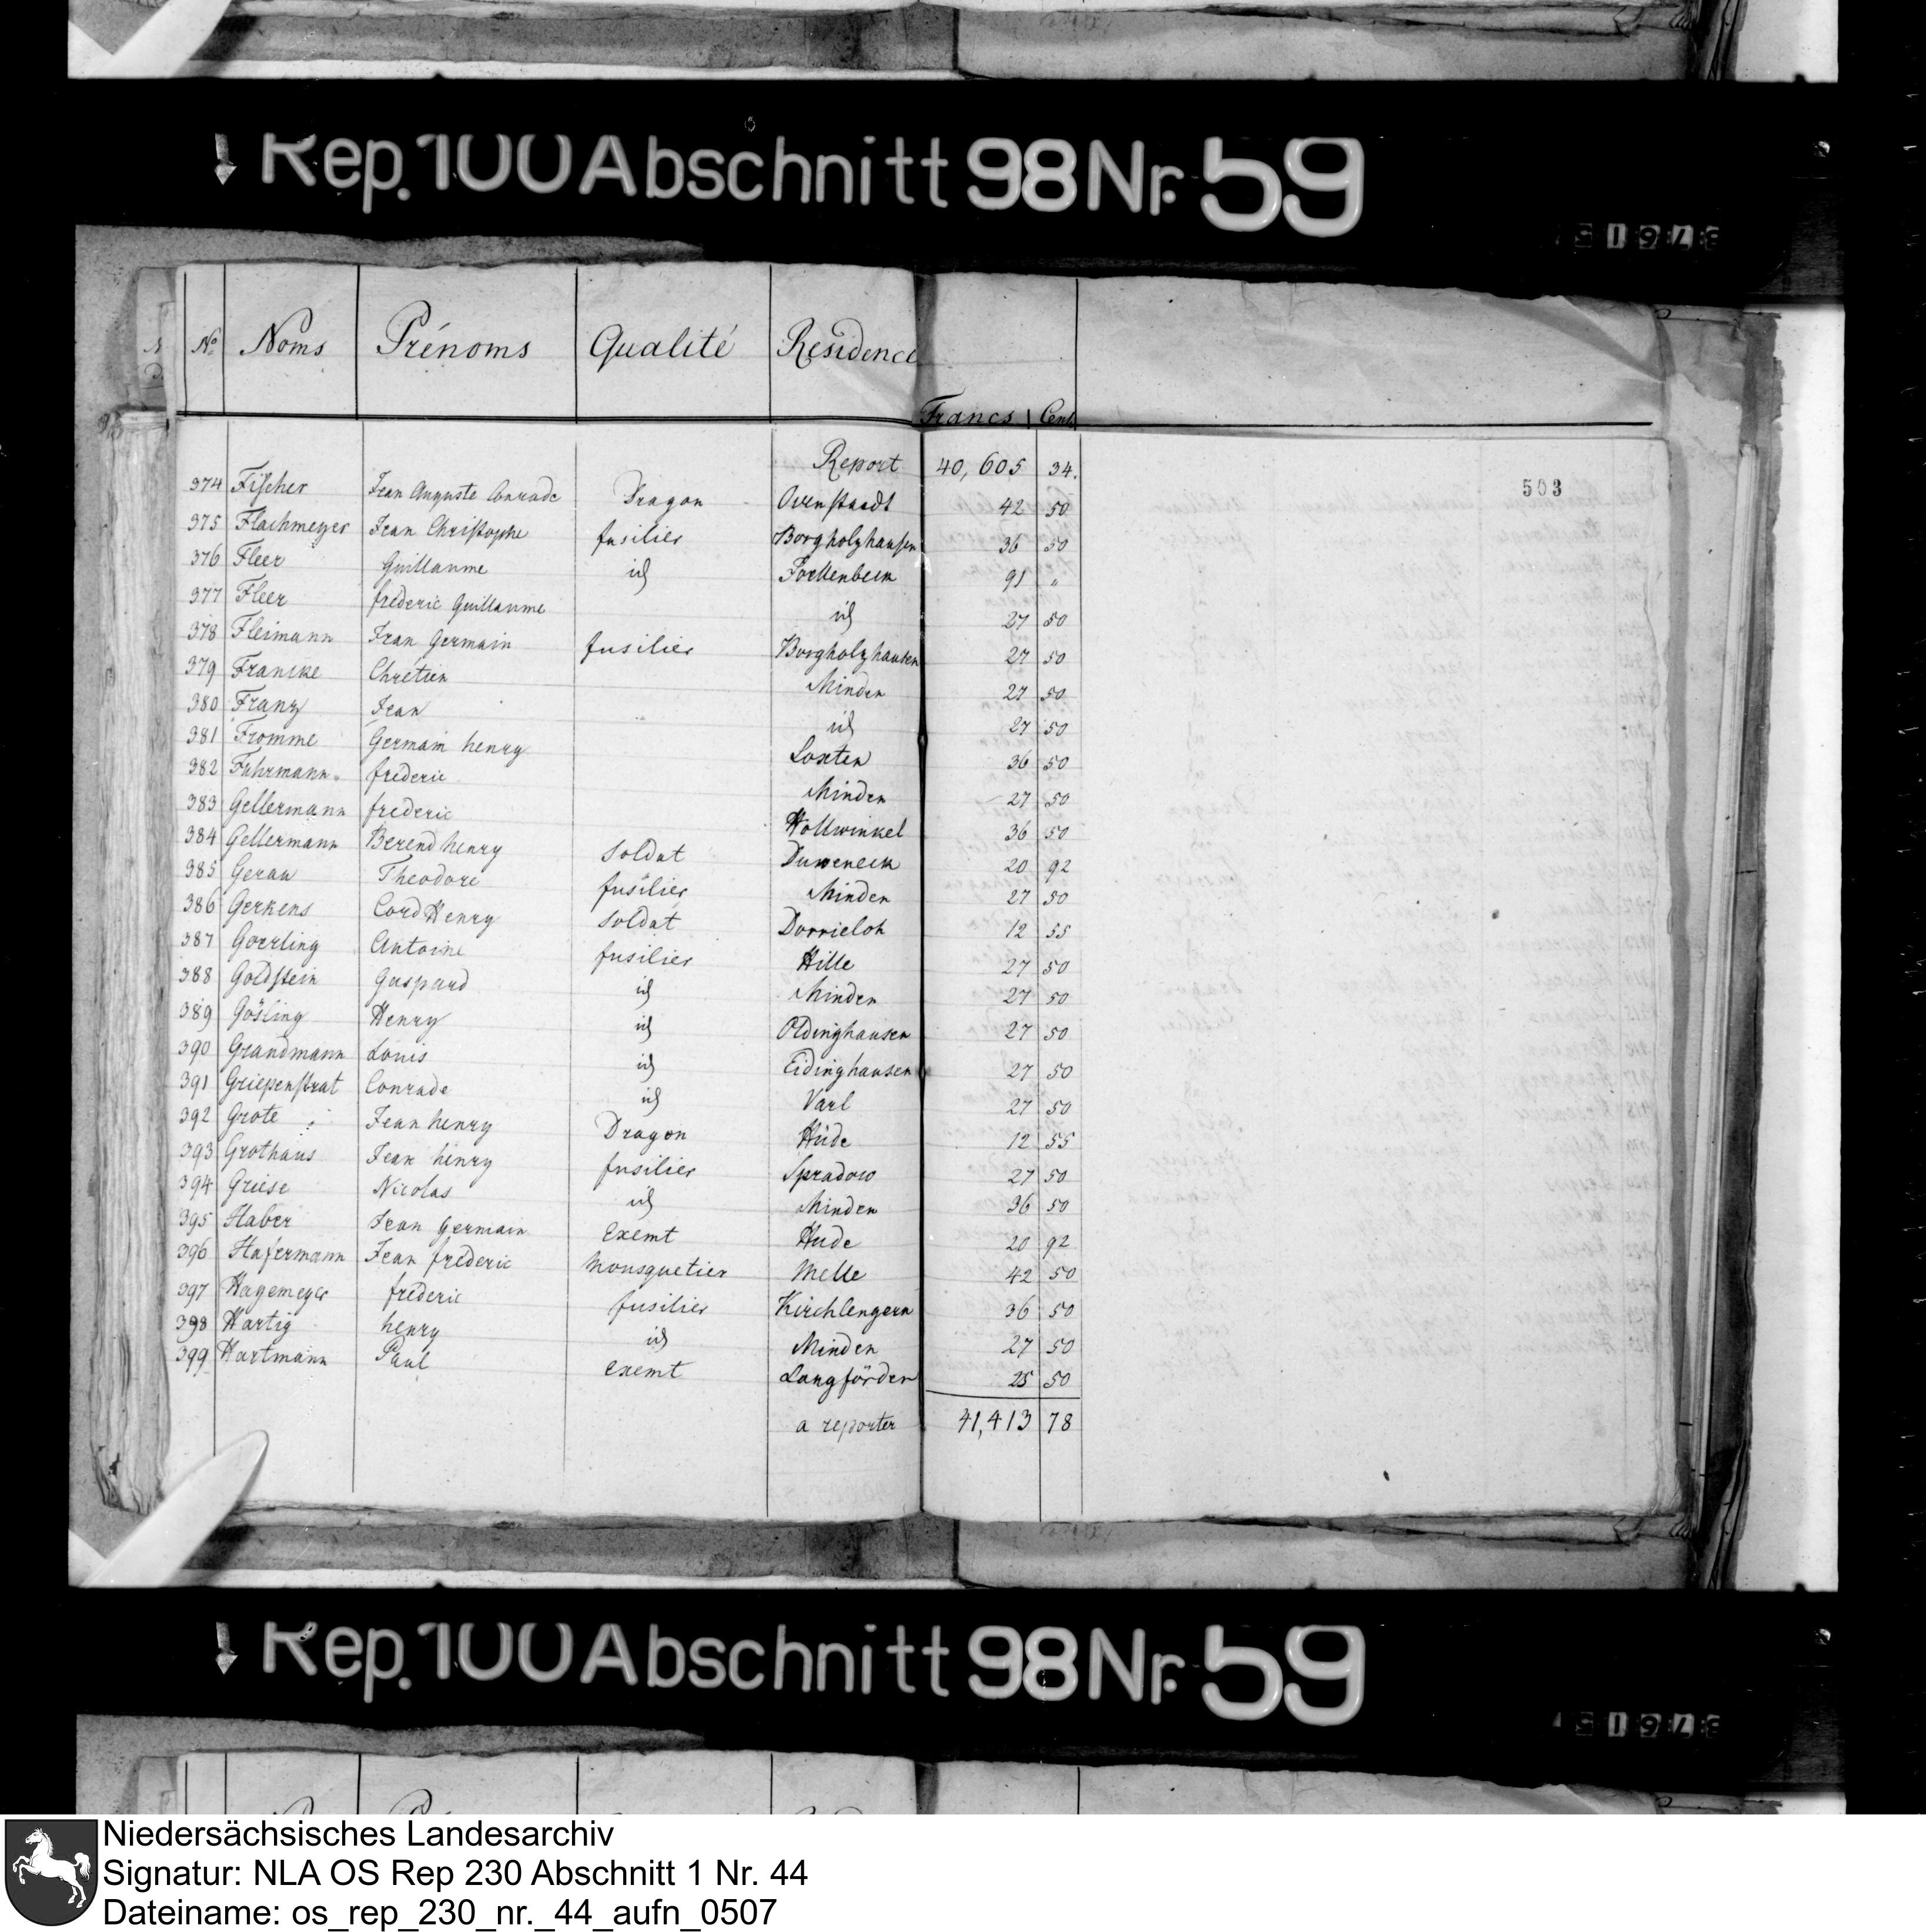 Rep. 100 Abschnitt 98 Nr. 59
No Noms Prénoms Qualité Residence Francs Cent.
Report 40,605 34.
503
374 Fischer Jean Auguste Conrade Dragon Ovenstaedt 42 50
375 Flachmeyer Jean Christophe fusilier Borgholzhausen 36 50
376 Fleer Guillaume id 91 "
377 Fleer frederic Guillaume id 27 50
378 Fleimann Jean Germain fusilier Borgholzhausen 27 50
379 Francke Chrétien Minden 27 50
380 Franz Jean id 27 50
381 Fromme Germain henry Loxten 36 50
382 Fuhrmann frederic Minden 27 50
383 Gellermann frederic Hollwinkel 36 50
384 Gellermann Berend henry soldat Duveneck 20 92
385 Gerau Theodore fusilier Minden 27 50
386 Gerkens Cord Henry soldat Dorrieloh 12 55
387 Goerling Antoine fusilier Hille 27 50
388 Goldstein Gaspard id Minden 27 50
389 Gösling Henry id Oldinghausen 27 50
390 Grandmann Louis id Eidinghausen 27 50
391 Griepenstrat Conrade id Varl 27 50
392 Grote Jean henry Dragon Hüde 12 55
393 Grothaus Jean henry fusilier Spradow 27 50
394 Griese Nicolas id Minden 36 50
395 Haber Jean Germain Exemt Hude 20 92
396 Hafermann Jean frederic Mousquetier Melle 42 50
397 Hagemeyer frederic fusilier Kirchlengern 36 50
398 Hartig henry id Minden 27 50
399 Hartmann Paul exemt Langförden 25 50
a reporter 41,413 78
Rep. 100 Abschnitt 98 Nr. 59
Niedersächsisches Landesarchiv
Signatur: NLA OS Rep 230 Abschnitt 1 Nr. 44
Dateiname: os_rep_230_nr._44_aufn_0507